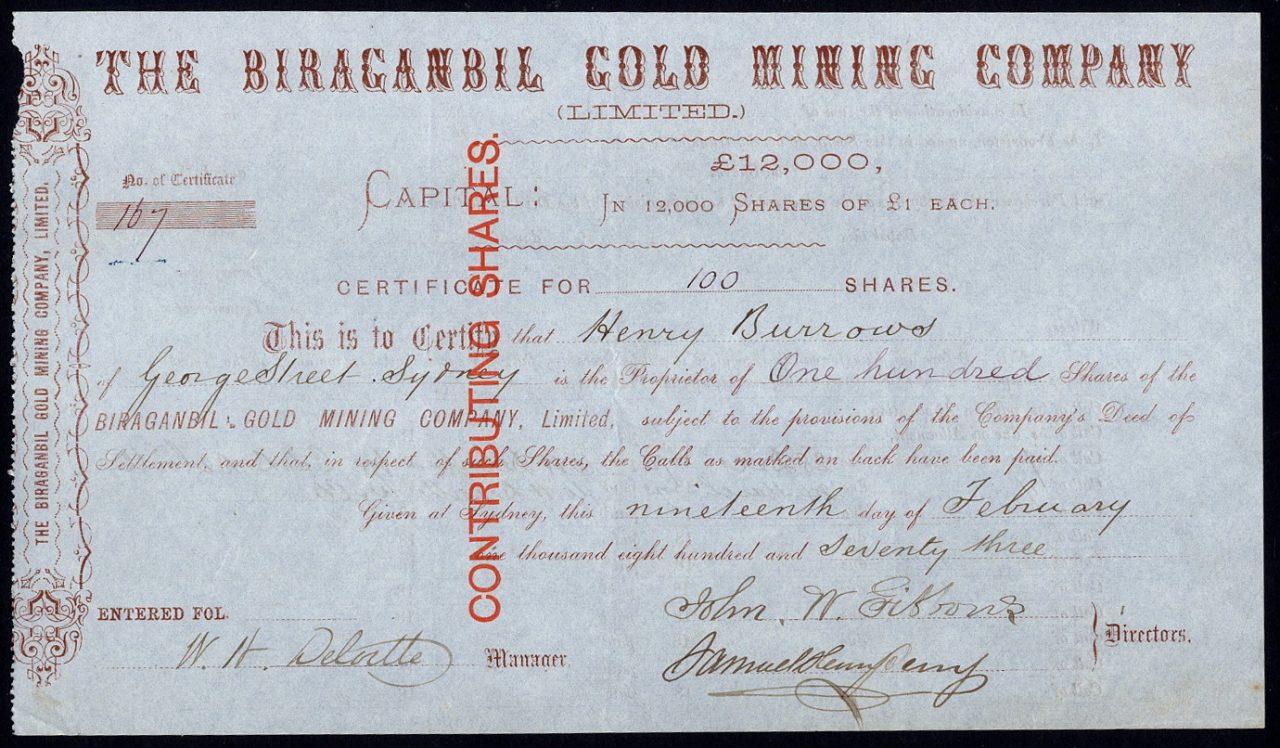 THE BIRAGANBIL GOLD MINING COMPANY
(LIMITED.)
£12,000,
No. of Certificate
CAPITAL:
IN 12,000 SHARES OF £1 EACH.
167
CERTIFICATE FOR 100 SHARES.
This is to Certify that Henry Burrows
of George Street Sydney is the Proprietor of One hundred Shares of the
BIRAGANBIL GOLD MINING COMPANY, Limited, subject to the provisions of the Company's Deed of
Settlement, and that, in respect of such Shares, the Calls as marked on back have been paid.
Given at Sydney, this nineteenth day of February
one thousand eight hundred and Seventy three
ENTERED FOL.
John W. Gibbons
Samuel Henry
Directors.
W. H. Deloitte Manager
CONTRIBUTING SHARES.
THE BIRAGANBIL GOLD MINING COMPANY, LIMITED.